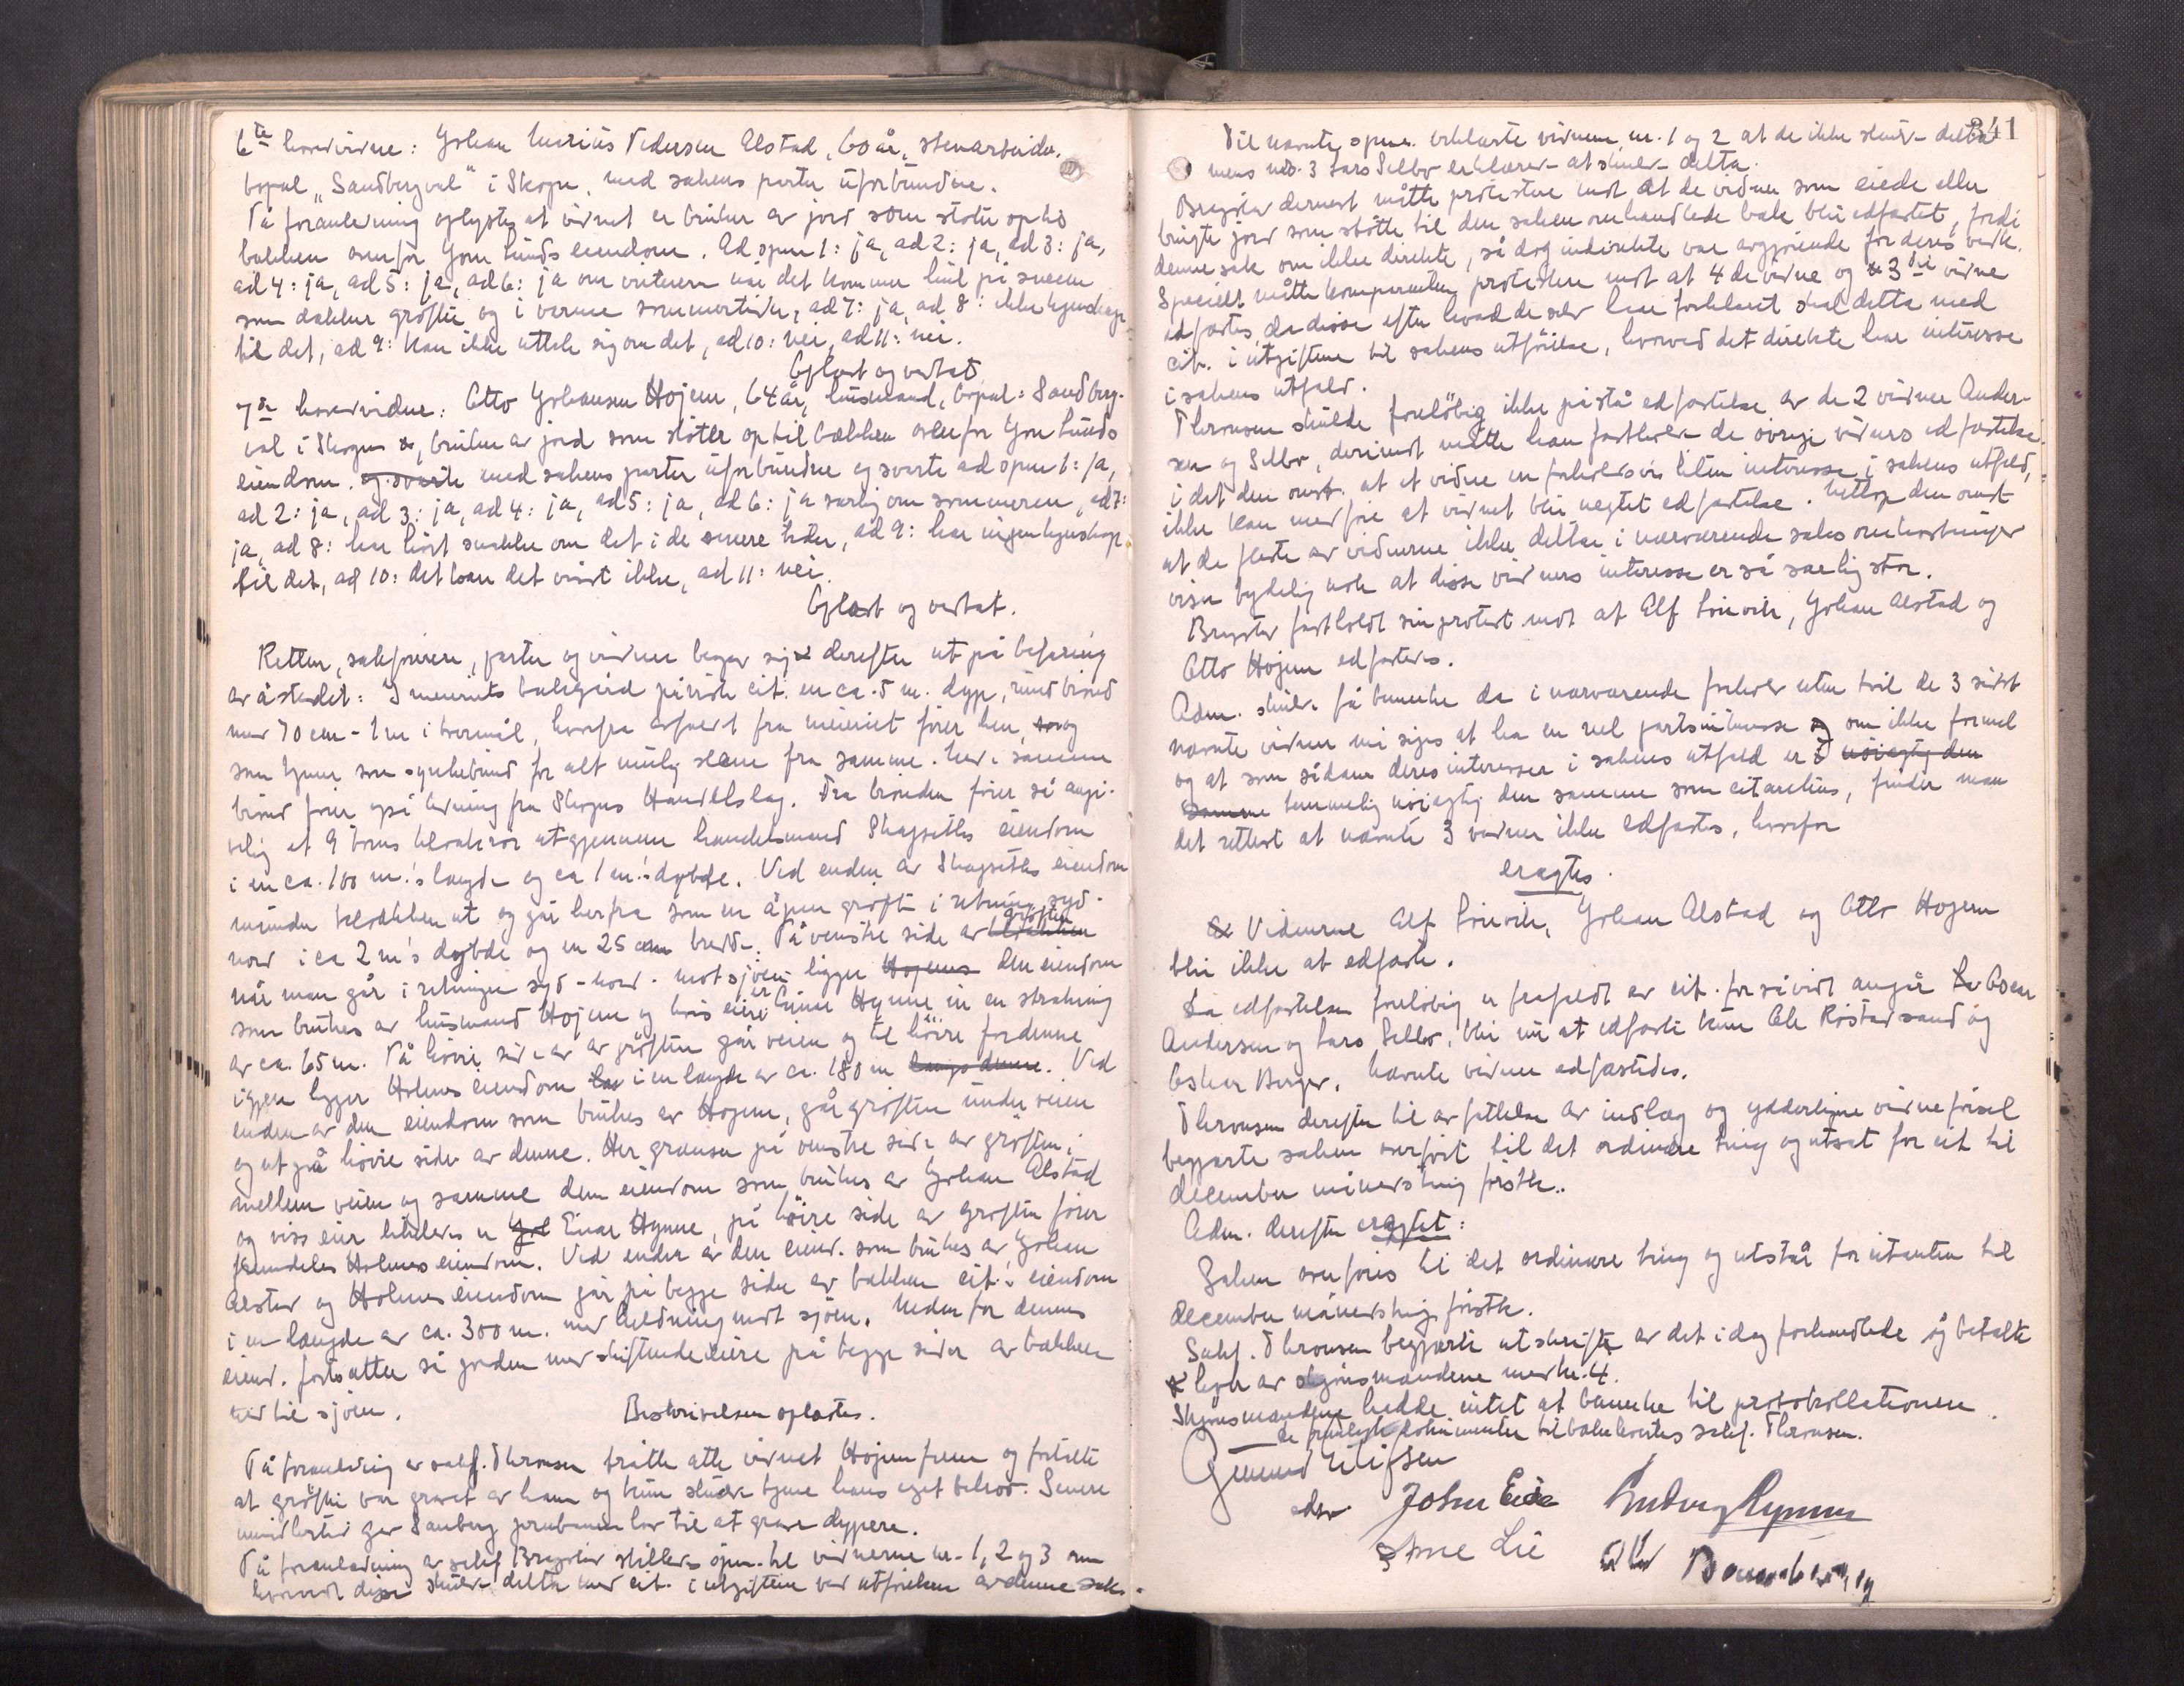 6te hovedvidne: Johan Marius Pedersen Alstad, 60 år, stenarbeider,
bopæl "Sandbergval" i Skogn, med sakens parter uforbunden.
På foranledning oplystes at vidnet er bruker av jord som støter op til
bækken ovenfor Jon Lunds eiendom. Ad spm 1: ja, ad 2: ja, ad 3: ja,
ad 4: ja, ad 5: ja, ad 6: ja om vinteren når det kommer hul på sneen
som dækker grøften og i varme sommertider, ad 7: ja, ad 8: ikke kjendskap
til det, ad 9: kan ikke uttale sig om det, ad 10: nei, ad 11: nei.
Oplæst og vedtat.
7de hovedvidne: Otto Johansen Hojem, 64 år, husmand, bopæl: Sandberg-
val i Skogn, bruker av jord som støter op til bækken ovenfor Jon Lunds
eiendom. og svarte med sakens parter uforbunden og svarte ad spm 1: ja,
ad 2: ja, ad 3: ja, ad 4: ja, ad 5: ja, ad 6: ja særlig om sommeren, ad 7:
ja, ad 8: har hørt snakke om det i de senere tider, ad 9: har ingen kjendskap
til det, ad 10: det kan det visst ikke, ad 11: nei.
Oplæst og vedtat.
Retten, sakførerne, parter og vidner begav sig derefter ut på befaring
av åstedet: I meieriets bakgård påviste cit. en ca. 5 m. dyp, rund brønd
med 70 cm - 1 m i tvermål, hvorfra avfaldet fra meieriet fører hen, og
som tjener som synkebrønd for alt mulig slam fra samme. Ned i samme
brønd fører også ledning fra Skogns Handelslag. Fra brønden fører så angi-
velig et 9 toms kloakrør ut gjennem handelsmand Skapseths eiendom
i en ca. 100 m.'s længde og ca 1 m.'s dybde. Ved enden av Skapseths eiendom
munder kloakken ut og går herfra som en åpen grøft i retning syd-
nord i ca 2 m's dybde og en 25 cm bredde. På venstre side av kloakken grøften
når man går i retningen syd-nord mot sjøen ligger Hojems den eiendom
som brukes av husmand Hojem og hvis eier er Einar Hynne i en strækning
av ca. 65 m. På høire side av grøften går veien og til høire for denne
igjen ligger Holmes eiendom i en længde av ca. 180 m langs denne. Ved
enden av den eiendom som brukes av Hojem, går grøften under veien
og ut på høire side av denne. Her grænser på venstre side av grøften,
mellem veien og samme den eiendom som brukes av Johan Alstad
og viss eier likeledes er Joh Einar Hynne, på høire side av grøften fører
fremdeles Holmes eiendom. Ved enden av den eiend. som brukes av Johan
Alstad og Holmes eiendom går på begge sider av bækken cit.s eiendom
i en længde av ca. 300 m. med heldning mot sjøen. Nedenfor dennes
eiend. fortsætter så jorden med skiftende eiere på begge sider av bækken
ned til sjøen.
Beskrivelsen oplæstes.
På foranledning av sakf. Thronsen trådte atter vidnet Hojem frem og fortalte
at grøften var gravet av ham og kun skulde tjene hans eget behov. Senere
imidlertid gav Sanberg jernbanen lov til at grave dypere.
På foranledning av sakf. Brygstad stilledes spm. til vidnerne nr. 1, 2 og 3 om
hvorvidt disse skulde delta med cit. i utgiftene ved utførelsen av denne sak.
341
Til nævnte spm. erklærte vidnene nr. 1 og 2 at de ikke skulde delta
mens vidne 3 Lars Selbo erklærer at skulde delta.
Brygstad dernæst måtte protestere mot at de vidner som eiede eller
brugte jord som støtte til den saken omhandlede bæk blir edfæstet, fordi
denne sak om ikke direkte, så dog indirekte var avgjørende for deres vedk.
Specielt måtte komparenten protestere mot at 4de vidne og 3die vidne
edfæstes, da disse efter hvad de selv har forklaret skal delta med
cit. i utgiftene til sakens utførelse, hvorved det direkte har interesse
i sakens utfald.
Thronsen skulde foreløbig ikke påstå edfæstelse av de 2 vidner Ander-
sen og Selbo, derimot måtte han fastholde de øvrige vidners edfæstelse,
i det den omst. at et vidne en forholdsvis liten interesse i sakens utfald,
ikke kan medføre at vidnet blir negtet edfæstelse. Netop den omst.
at de fleste av vidnerne ikke deltar i nærværende saks omkostninger
viser tydelig nok at disse vidners interesse er så særlig stor.
Brygstad fastholdt sin protest mot at Alf Leirvik, Johan Alstad og
Otto Hojem edfæstedes.
Adm. skulde få bemerke da i nærværende forhold uten tvil de 3 sidst
nævnte vidner må siges at ha en reel partsinteresse om ikke formel
og at som sådan deres interesser i sakens utfald er nøiagtig den
samme temmelig nøiagtig den samme som citantens, finder man
det rettest at nævnte 3 vidner ikke edfæstes, hvorfor
eragtes.
Vidnerne Alf Leirvik, Johan Alstad og Otto Hojem
blir ikke at edfæste.
Da edfæstelsen foreløbig er frafaldt av cit. forsåvidt angår Oscar
Andersen og Lars Selbo, blir nu at edfæste kun Ole Røstadsand og
Oskar Berger. Nævnte vidner edfæstedes.
Thronsen derefter til avfattelse av indlæg og yderligere vidneførsel
begjærte saken overført til det ordinære ting og utsat for cit til
december måneds ting førstk..
Adm. derefter eragtet:
Saken overføres til det ordinære ting og utstår for citanten til
december måneds ting førstk.
Sakf. Thronsen begjærte utskrift av det i dag forhandlede og betalte
lyder av skjønsmændene med kr. 4.
Skjønsmændene hadde intet at bemerke til protokollationen.
De fremlagte dokumenter tilbakelevertes sakf. Thronsen.
John Eide Ludvig Rymme
Arne Lie